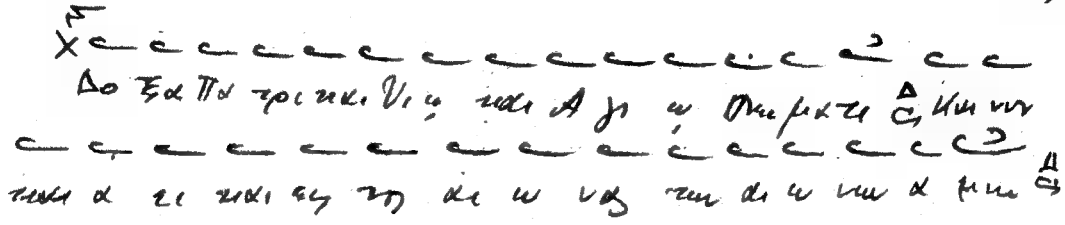 Δο ξα Πα τρι και Υι ω και Α γι ω Πνευματι Δ και νυν
και α ει και εις τους αι ω νας των αι ω νων α μην Δ